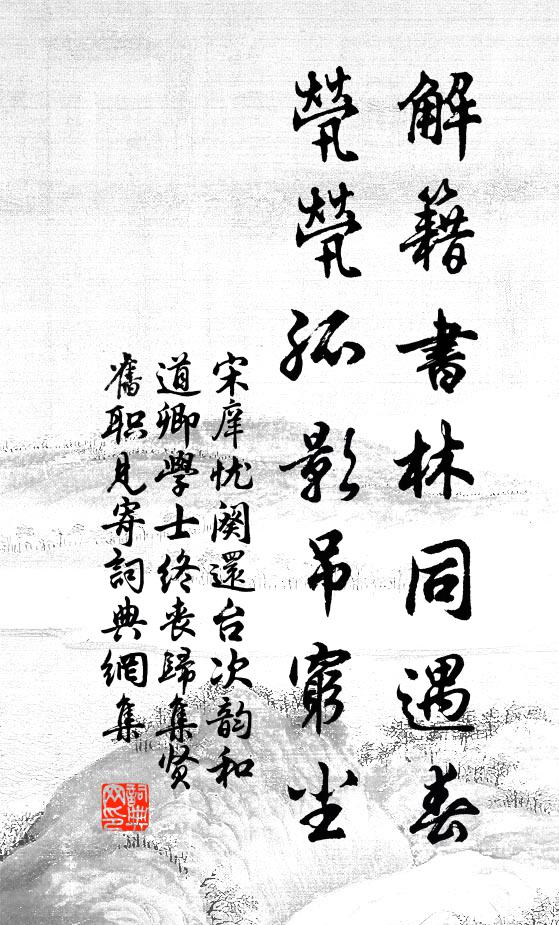 解籍書林同遇春
煢煢孤影吊窮尘
宋庠忧阕還台次韵和
道卿學士终丧歸集贤
舊职見寄詞典網集
詞典网印